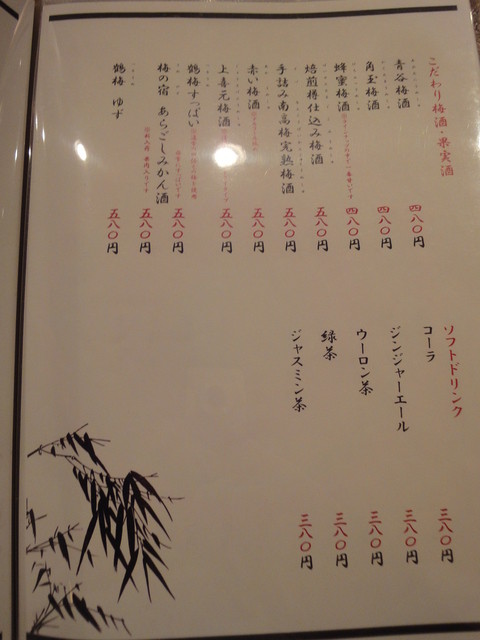 こだわり梅酒・果実酒
青谷梅酒 四八〇円
角玉梅酒 四八〇円
蜂蜜梅酒 四八〇円
焙煎樽仕込み梅酒 五八〇円
手詰み南高梅完熟梅酒 五八〇円
赤い梅酒 五八〇円
上喜元梅酒 五八〇円
鶴梅すっぱい 五八〇円
梅の宿 あらごしみかん酒 五八〇円
鶴梅 ゆず 五八〇円
ソフトドリンク
コーラ 三八〇円
ジンジャーエール 三八〇円
ウーロン茶 三八〇円
緑茶 三八〇円
ジャスミン茶 三八〇円